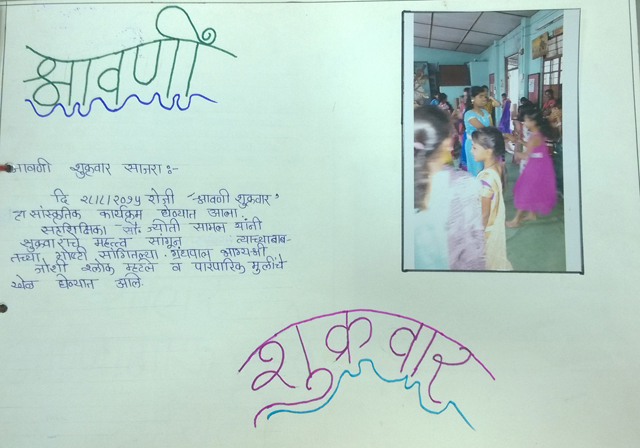 श्रावणी
श्रावणी शुक्रवार साजरा :-
दि २८।८।२०१५ रोजी "श्रावणी शुक्रवार"
हा सांस्कृतिक कार्यक्रम घेण्यात आला.
सहशिक्षिका सौ. ज्योती सामल यांनी
शुक्रवाराचे महत्त्व सांगून त्याच्याबाब-
तच्या गोष्टी सांगितल्या. ग्रंथपाल
जोशी श्लोक म्हटले व पारंपारिक मुलींचे
खेळ घेण्यात आले.
शुक्रवार